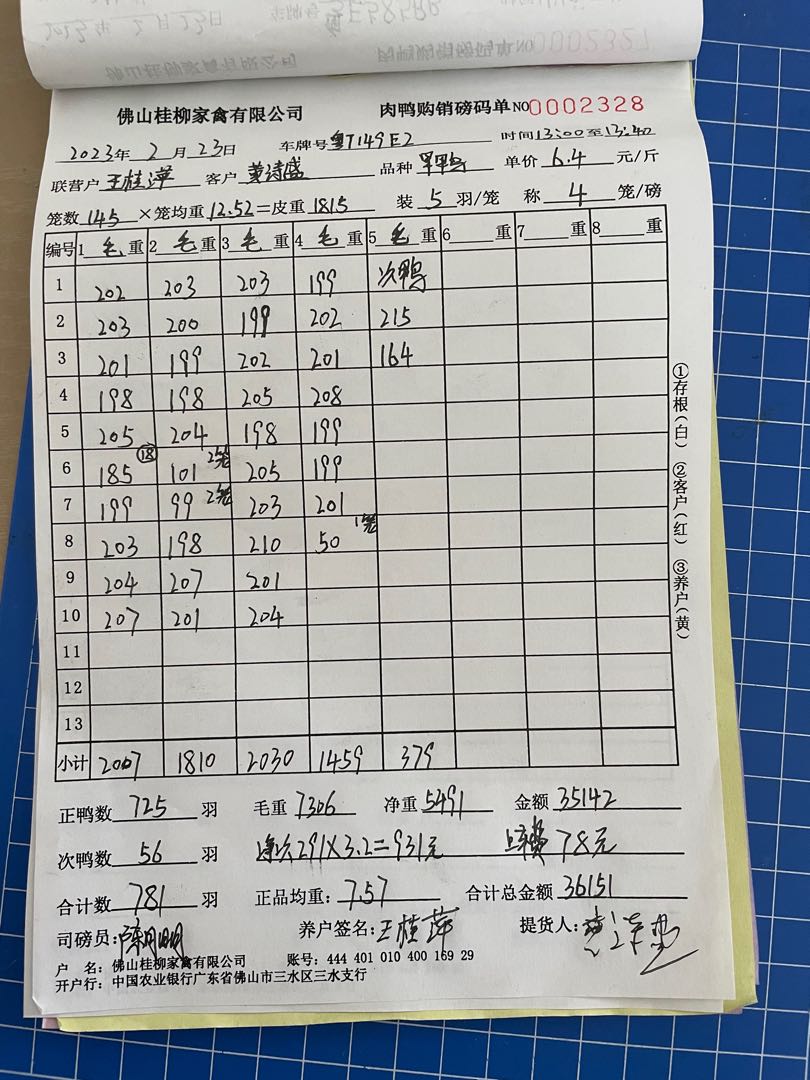 2023年 2月23日
NO0002327
佛山桂柳家禽有限公司 肉鸭购销磅码单NO0002328
2023年 2月23日 车牌号粤T149E2 时间13:00至13:40
联营户王桂萍 客户黄诗盛 品种旱鸭 单价6.4元/斤
笼数145×笼均重12.52=皮重1815 装5羽/笼 称4笼/磅
编号 1毛重 2毛重 3毛重 4毛重 5毛重 6重 7重 8重
1 202 203 203 199 次鸭
2 203 200 199 202 215
3 201 199 202 201 164
4 198 198 205 208
5 205 204 198 199
6 185⑱ 101 2笼 205 199
7 199 99 2笼 203 201
8 203 198 210 50 1笼
9 204 207 201
10 207 201 204
11
12
13
小计 2007 1810 2030 1459 379
正鸭数725羽 毛重7306 净重5491 金额35142
次鸭数56羽 净次291×3.2=931元 78元
合计数781羽 正品均重:7.57 合计总金额36151
司磅员: 养户签名:王桂萍 提货人:
户 名:佛山桂柳家禽有限公司 账号:444 401 010 400 169 29
开户行:中国农业银行广东省佛山市三水区三水支行
①存根(白) ②客户(红) ③养户(黄)